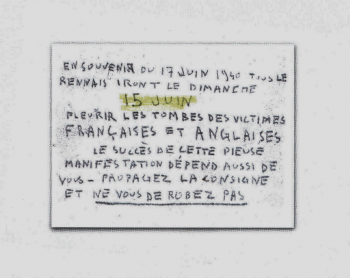 EN SOUVENIR DU 17 JUIN 1940 TOUS LE
RENNAIS IRONT LE DIMANCHE
15 JUIN
FLEURIR LES TOMBES DES VICTIMES
FRANÇAISES ET ANGLAISES
LE SUCCÈS DE CETTE PIEUSE
MANIFESTATION DÉPEND AUSSI DE
VOUS - PROPAGEZ LA CONSIGNE
ET NE VOUS DEROBEZ PAS